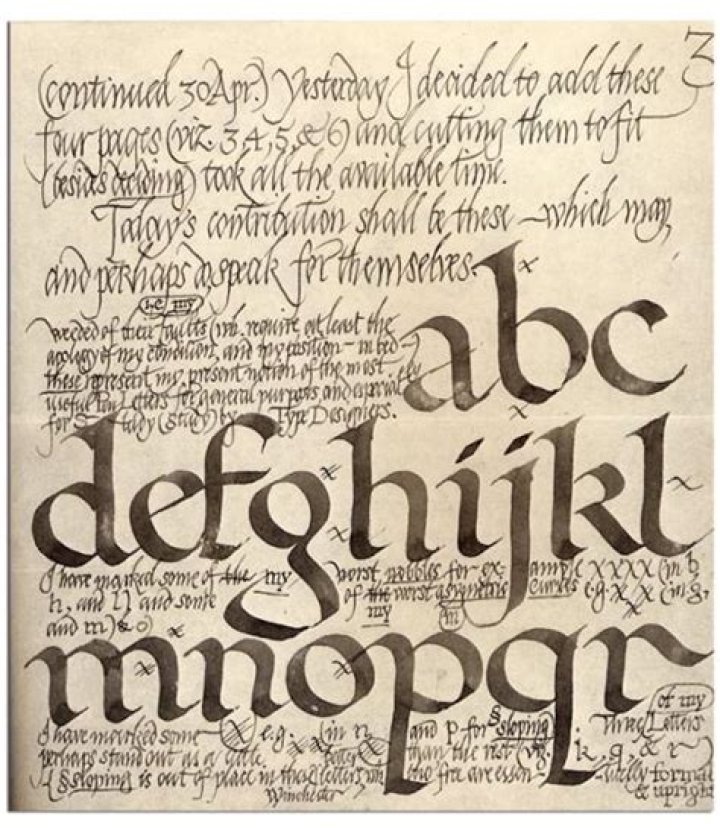 3
(continued 30 Apr.) Yesterday I decided to add these
four pages (viz. 3,4,5,&6) and cutting them to fit
(besides deciding) took all the available time.
Today's contribution shall be these – which may,
and perhaps do, speak for themselves.
i.e. my
weeded of their faults (wh. require at least the
apology of my condition, and my position – in bed –
these represent my present notion of the most
useful Pen Letters for general purposes and especially
for Study (study) by Type Designers.
abc
defghijkl
I have marked some of the my worst wobbles for example X X X X (in b
h, and l) and some of the worst asymmetric curves e.g. X X (in g,
and m) &c) my in
mnopqr
I have marked some X e.g. (in n and p for § sloping) of my
perhaps stand out as a little better than the rest (viz. k, q, & r
(§ sloping is out of place in these letters, wh
Winchester
the fire are essentially formal
& upright
three Letters